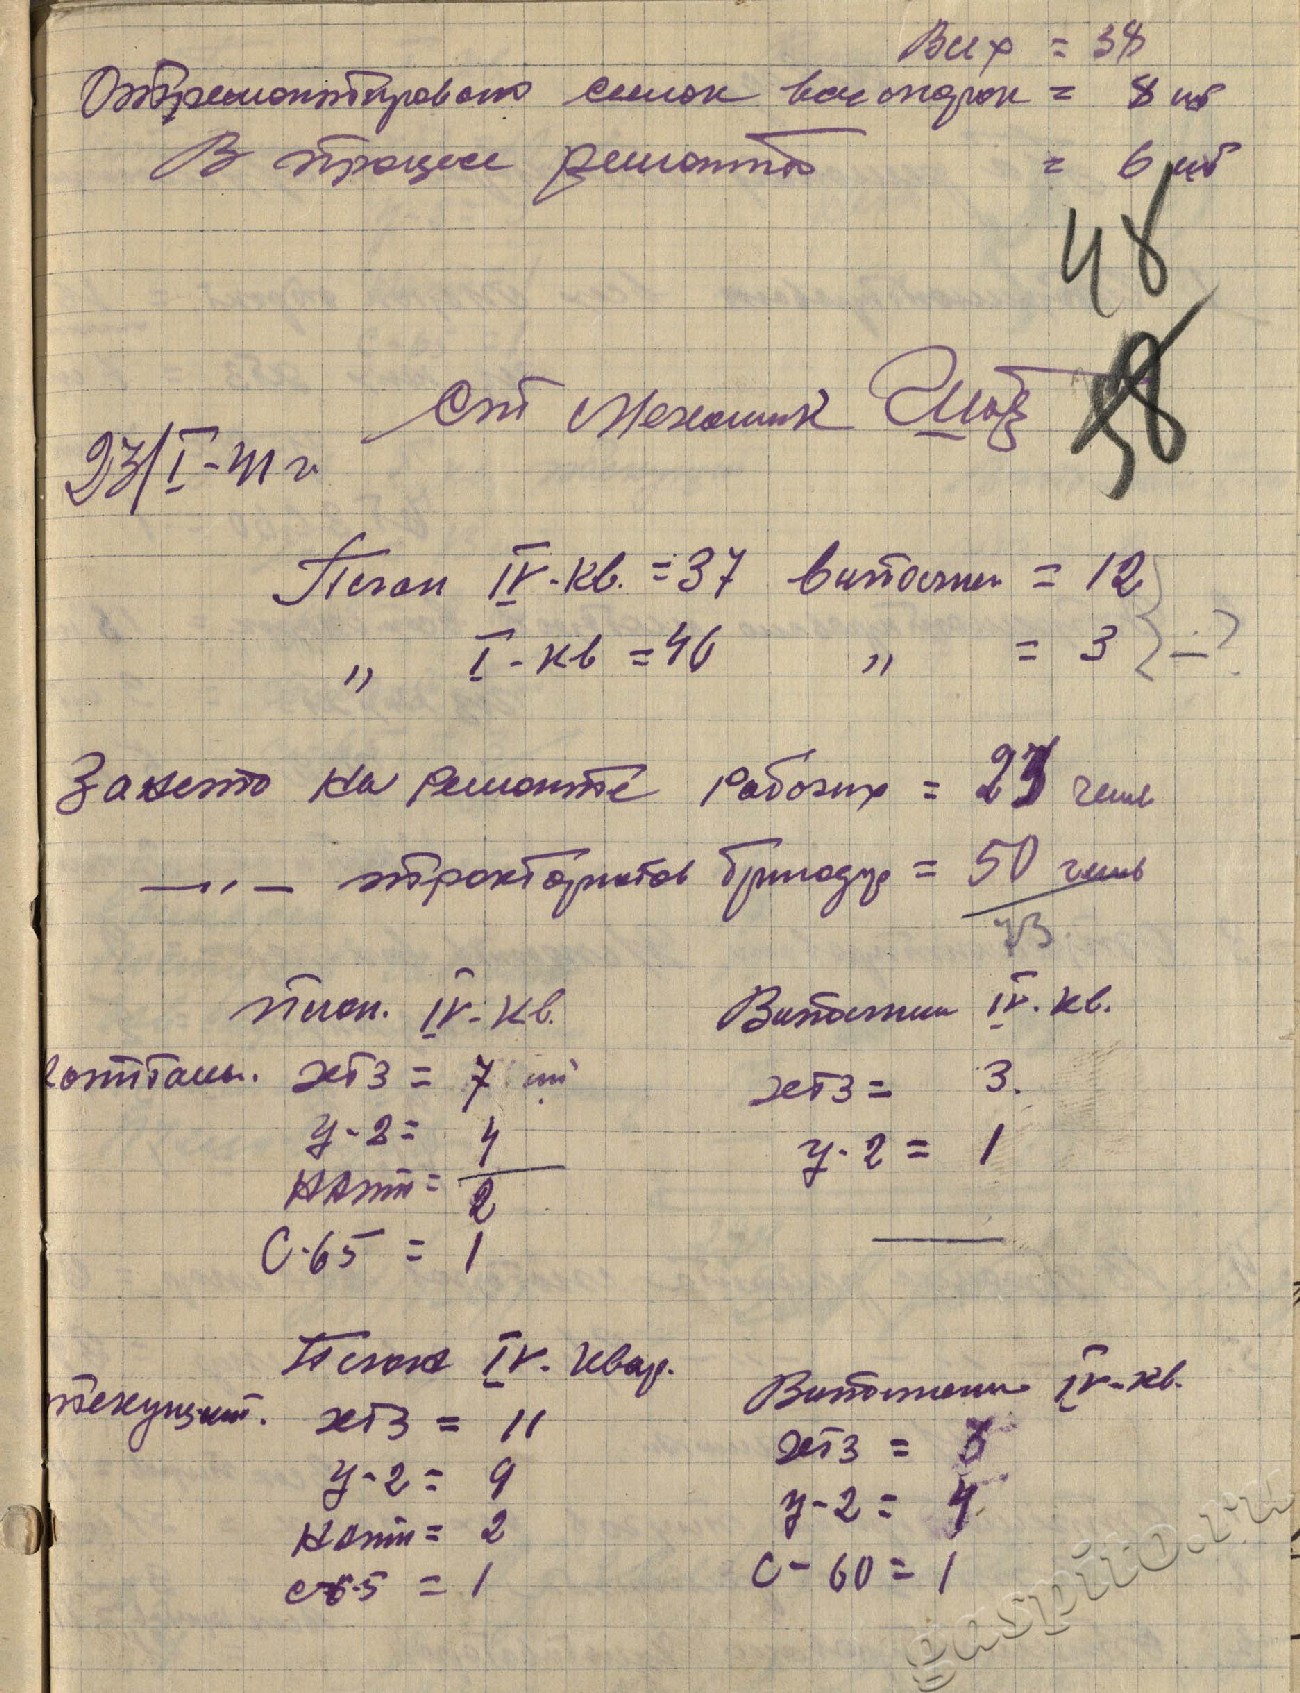 Вих = 38
Отремонтировано сеялок = 8 шт
В процесе ремонта = 6 шт
48
38
Ст Механик
23/I-41 г.
План IV-кв. = 37 выполнен = 12
" I-кв = 46 " = 3 } — ?
Занято на ремонте рабочих = 23 чель
—"— трактористов бригадир = 50 чель
73
План. IV-кв. Выполнен IV-кв.
капиталь. ХТЗ = 7 шт ХТЗ = 3.
У-2 = 4 У-2 = 1
НАТИ = 2
С-65 = 1
План IV-квар. Выполнении IV-кв.
текущий. ХТЗ = 11 ХТЗ =
У-2 = 9 У-2 = 4
НАТИ = 2 С-60 = 1
С-65 = 1
gaspito.ru